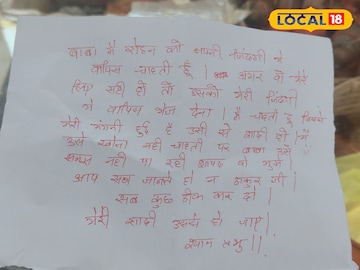 LOCAL 18
बाबा मैं रोहन को अपनी जिंदगी में
वापिस चाहती हूँ । अगर वो मेरे
लिए सही हो तो उसको मेरी जिंदगी
मे वापिस भेज देना । मैं चाहती हूँ जिससे
मेरी मंगनी हुई है उसी से शादी हो मैं
उसे खोना नहीं चाहती पर बाबा उसे
समझ नहीं पा रही
आप सब जानते हो न ठाकुर जी ।
सब कुछ ठीक कर दो ।
मेरी शादी उससे हो जाए ।
श्याम प्रभु ।।